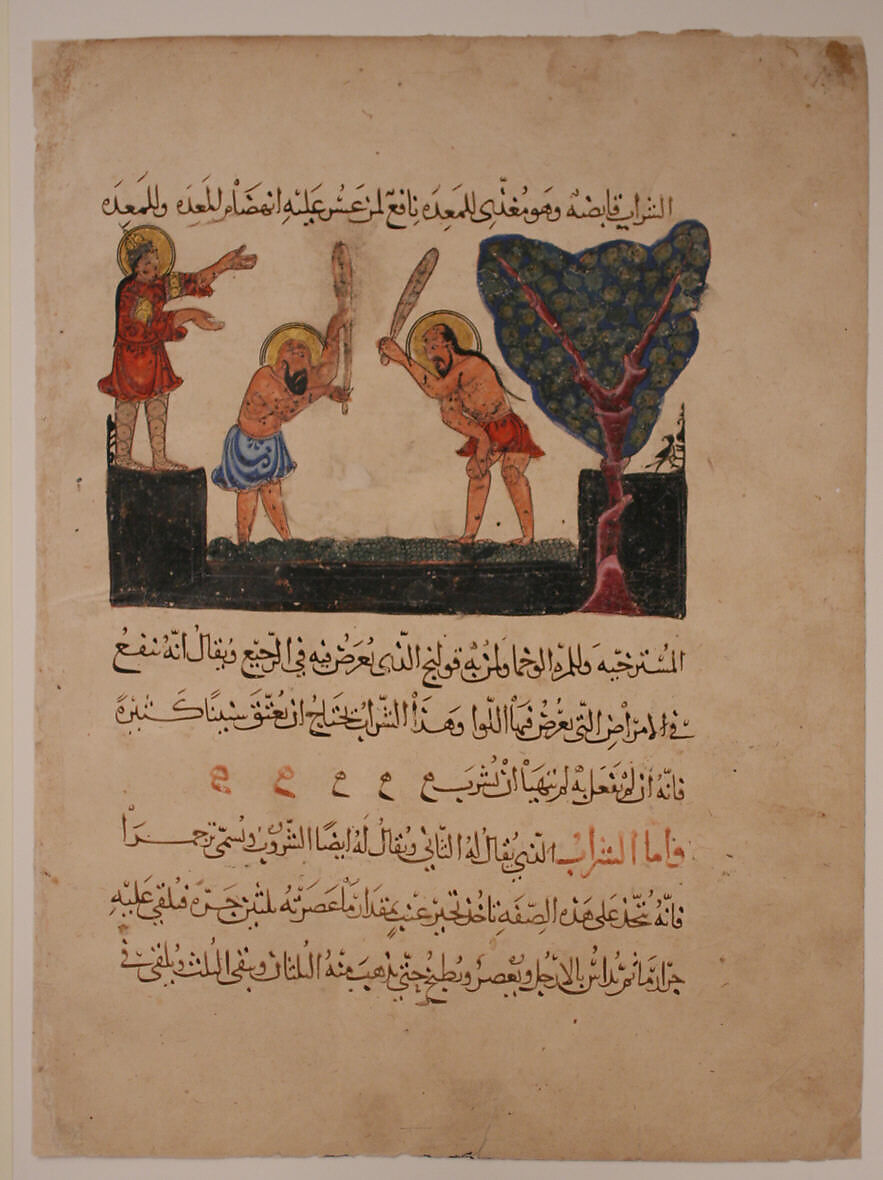 الشراب قابضة وهو مغذي للمعده نافع لمن عسر عليه انهضام للمعده وللمعده
المسترخيه وللمراه الوحما ولمن به قولنج الذي يعرض فيه في الرجيع ويقال انه ينفع
في الامراض التي يعرض فيها اللوا وهذا الشراب يحتاج ان يعتق سنينا كثيرة
فانه ان لم يفعل به لم يتهيا ان يشرب ه ه ه ه ه
واما الشراب الذي يقال له الثاني ويقال له ايضا الشروب ويسمى ترجمرا
فانه يتخذ على هذه الصفه تاخذ ثجير عنب بمقدار ما عصرته ثلثين جرة فيلقى عليه
جرار ما ثم يداس بالارجل ويعصر ويطبخ حتى يذهب منه الثلثان ويبقى الثلث ويلقى في